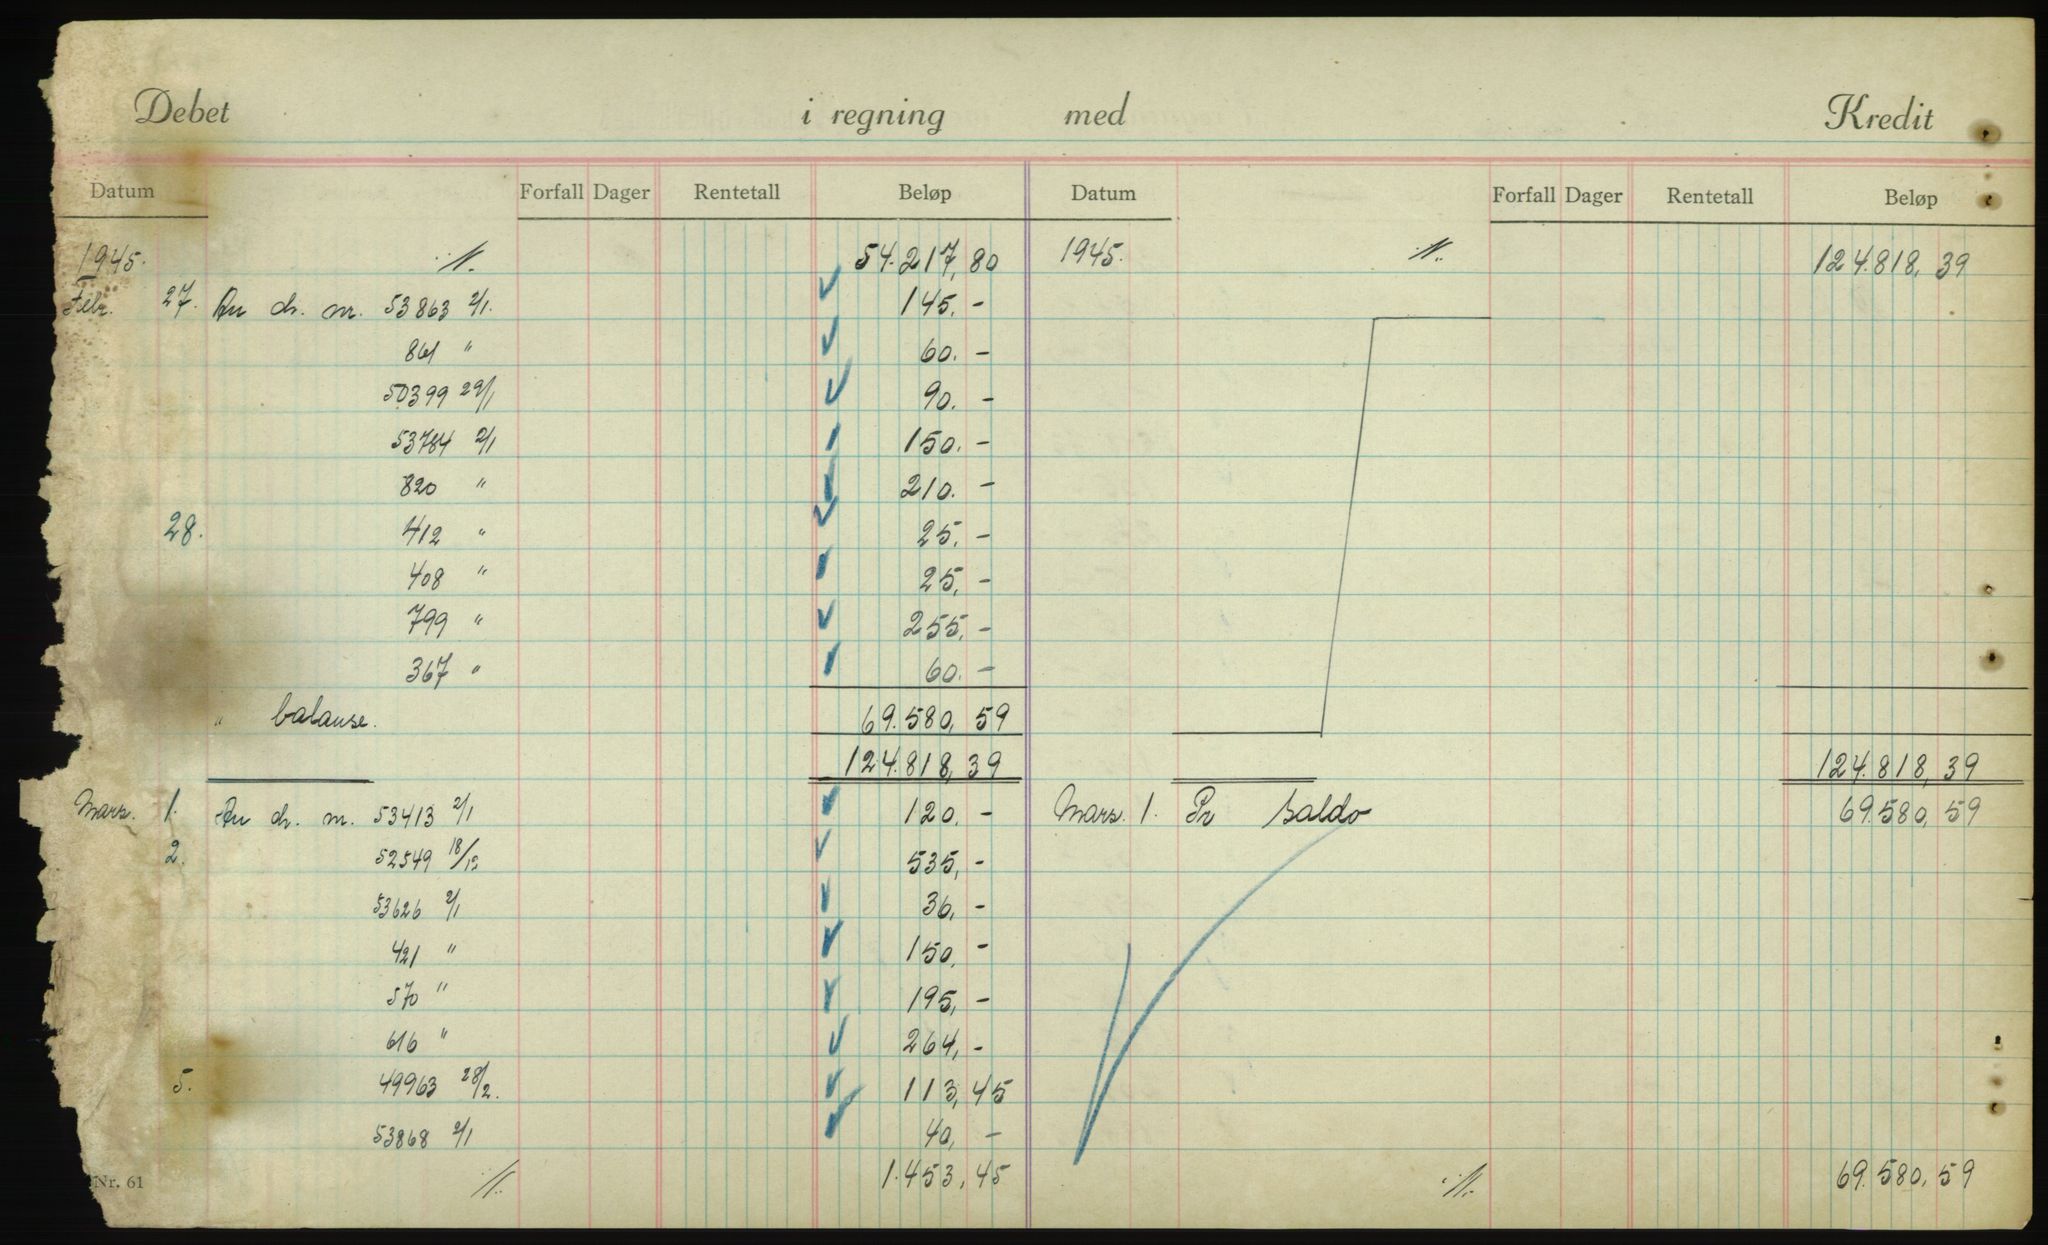 Debet i regning med Kredit
Datum Forfall Dager Rentetall Beløp Datum Forfall Dager Rentetall Beløp
1945. 54.217,80 1945. 124.818,39
Febr. 27. An ch. nr. 53863 2/1. 145.-
861 " 60.-
50399 29/1 90.-
53784 2/1 150.-
820 " 210.-
28. 412 " 25.-
408 " 25,-
799 " 255,-
367 " 60.-
" balanse. 69.580,59
124.818,39 124.818,39
Mars. 1. An ch. nr. 53413 2/1 120.- Mars. 1. Pr Saldo 69.580,59
2. 52549 18/12 535,-
53626 2/1 36,-
421 " 150,-
570 " 195,-
616 " 264,-
5. 49963 28/2. 113,45
53868 2/1 40,-
Nr. 61 1.453,45 69.580,59